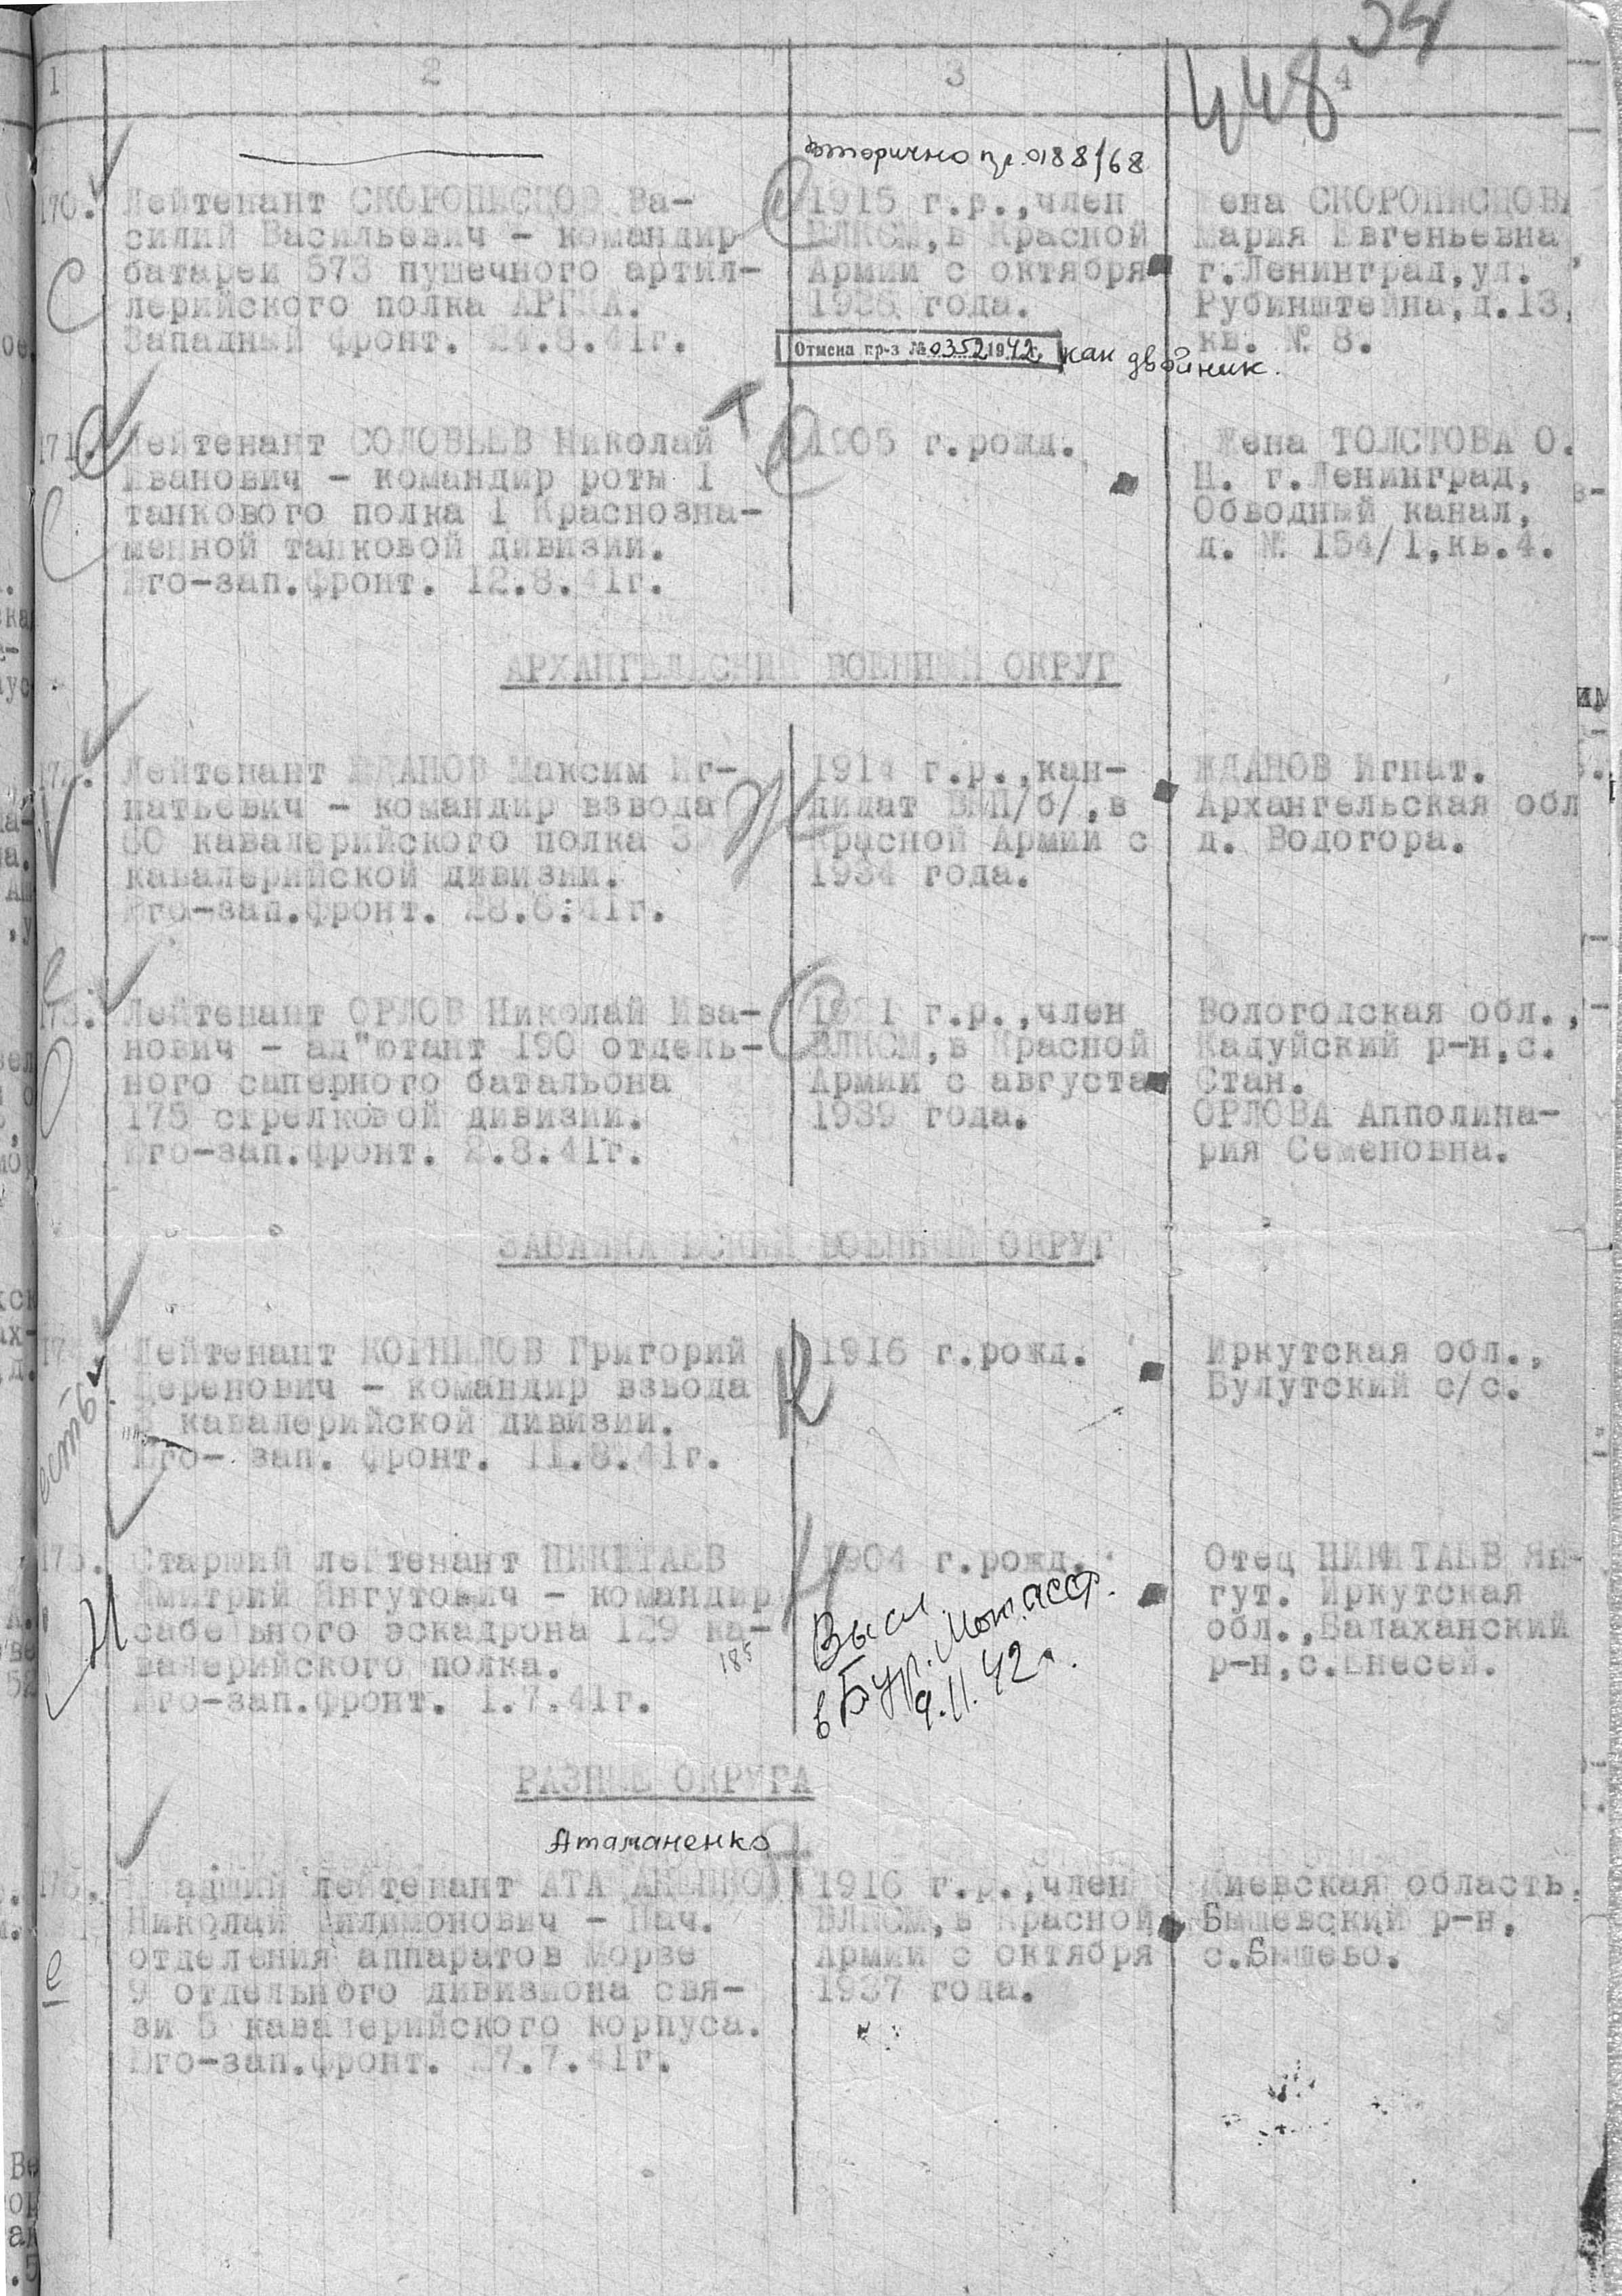 34
448
1 2 3 4
вторично пр. 0188/68
170. Лейтенант СКОРОПИСЦОВ Ва-
силий Васильевич - командир
батареи 573 пушечного артил-
лерийского полка АРГКА.
Западный фронт. 24.8.41г.
1915 г.р.,член
ВЛКСМ,в Красной
Армии с октября
года.
Отмена пр-з № 0352 1942г. как двойник.
Жена СКОРОПИСЦОВА
Мария Евгеньевна
г.Ленинград,ул.
Рубинштейна,д.13,
кв. № 8.
171. Лейтенант СОЛОВЬЕВ Николай
Иванович - командир роты 1
танкового полка 1 Краснозна-
менной танковой дивизии.
Юго-зап.фронт. 12.8.41г.
1905 г.рожд.
Жена ТОЛСТОВА О.
Н. г.Ленинград,
Обводный канал,
д. № 154/1,кв.4.
АРХАНГЕЛЬСКИЙ ВОЕННЫЙ ОКРУГ
172. Лейтенант ЖДАНОВ Максим Иг-
натьевич - командир взвода
60 кавалерийского полка 3
кавалерийской дивизии.
Юго-зап.фронт. 28.6.41г.
Ж
1914 г.р.,кан-
дидат ВКП/б/,в
Красной Армии с
1934 года.
ЖДАНОВ Игнат.
Архангельская обл
д. Водогора.
173. Лейтенант ОРЛОВ Николай Ива-
нович - ад"ютант 190 отдель-
ного саперного батальона
175 стрелковой дивизии.
Юго-зап.фронт. 2.8.41г.
1921 г.р.,член
ВЛКСМ,в Красной
Армии с августа
1939 года.
Вологодская обл.,
Кадуйский р-н,с.
Стан.
ОРЛОВА Апполина-
рия Семеновна.
ЗАБАЙКАЛЬСКИЙ ВОЕННЫЙ ОКРУГ
есть
174. Лейтенант КОРНИЛОВ Григорий
Церенович - командир взвода
кавалерийской дивизии.
Юго- зап. фронт. 11.8.41г.
К
1916 г.рожд.
Иркутская обл.,
Булутский с/с.
175. Старший лейтенант НИКИТАЕВ
Дмитрий Янгутович - командир
сабельного эскадрона 129 ка-
валерийского полка.
Юго-зап.фронт. 1.7.41г.
Н
185
1904 г.рожд.
Высл.
в Бур. Мон. АССР.
9.11.42г.
Отец НИКИТАЕВ Ян-
гут. Иркутская
обл.,Балаханский
р-н,с.Енесей.
РАЗНЫЕ ОКРУГА
Атаманенко
176. Младший лейтенант АТАМАНЕНКО
Николай Филимонович - Нач.
отделения аппаратов Морзе
9 отдельного дивизиона свя-
зи 5 кавалерийского корпуса.
Юго-зап.фронт. 27.7.41г.
1916 г.р.,член
ВЛКСМ,в Красной
Армии с октября
1937 года.
Киевская область.
Бышевский р-н,
с.Бышево.